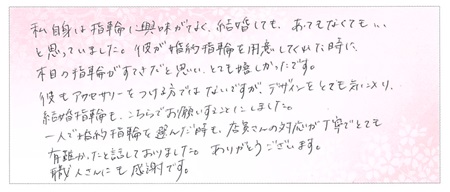 私自身は指輪に興味がなく、結婚しても、あってもなくてもいい
と思っていました。彼が婚約指輪を用意してくれた時に、
木目の指輪がすてきだと思い、とても嬉しかったです。
彼もアクセサリーをつける方ではないですが、デザインをとても気に入り、
結婚指輪も、こちらでお願いすることにしました。
一人で婚約指輪を選んだ時も、店員さんの対応が丁寧でとても
有難かったと話しておりました。ありがとうございます。
職人さんにも感謝です。